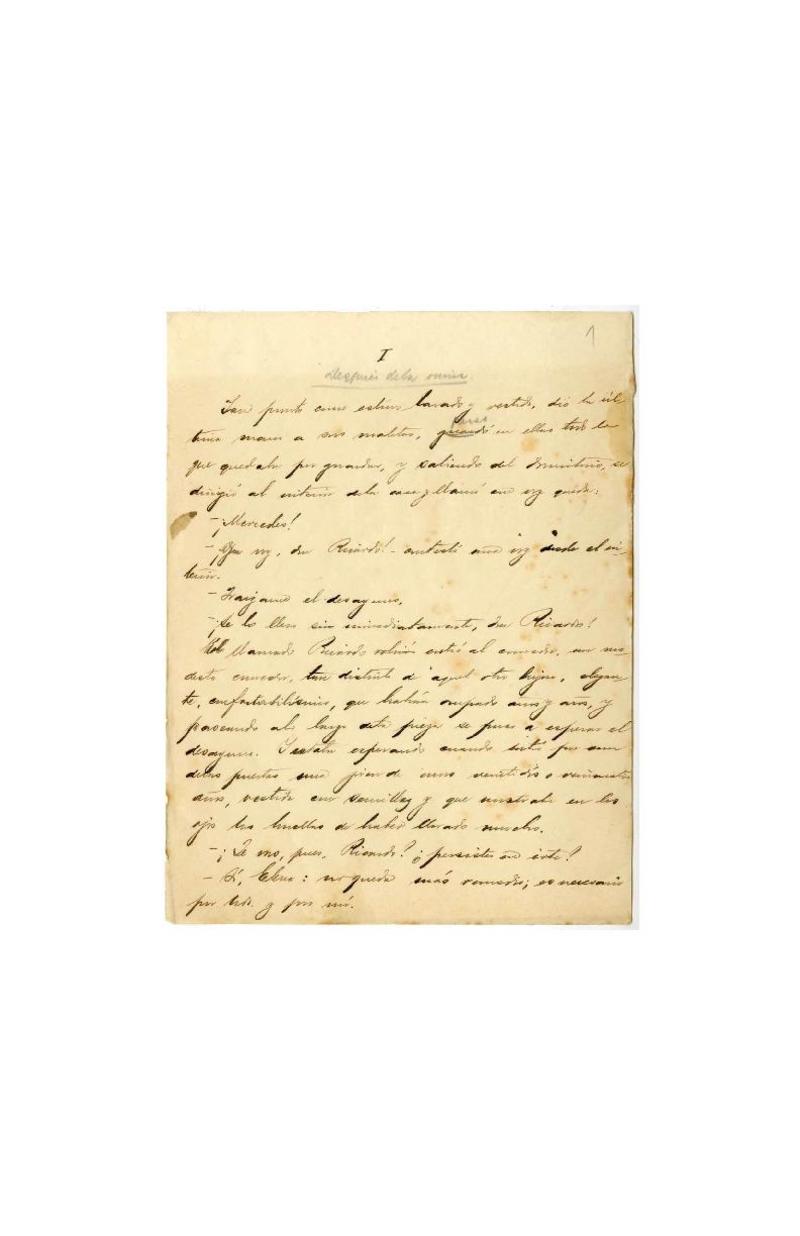 1
I
Después de la ruina
Tan pronto como estuvo lavado y vestido, dió la úl-
tima mano a sus maletas, guardó en ellas todo lo
puso
que quedaba por guardar, y saliendo del dormitorio, se
dirigió al interior de la casa y llamó en voz queda:
-¡Mercedes!
-¡Ya voy, don Ricardo! - contestó una voz desde el in-
terior.
- Traigame el desayuno.
-¡Se lo llevo inmediatamente, don Ricardo!
El llamado Ricardo volvió entró al comedor, un mo-
desto comedor, tan distinto de aquel otro lujoso, elegan-
te, confortabilísimo, que habían ocupado años y años, y
paseando a lo largo de la pieza se puso a esperar el
desayuno. Y estaba esperando cuando entró por una
de las puertas una joven de unos veintidós o veinticuatro
años, vestida con sencillez y que mostraba en los
ojos las huellas de haber llorado mucho.
-¿Te vas, pues, Ricardo? ¿persistes en irte?
- Sí, Elena: no queda más remedio; es necesario
por Uds. y por mí.